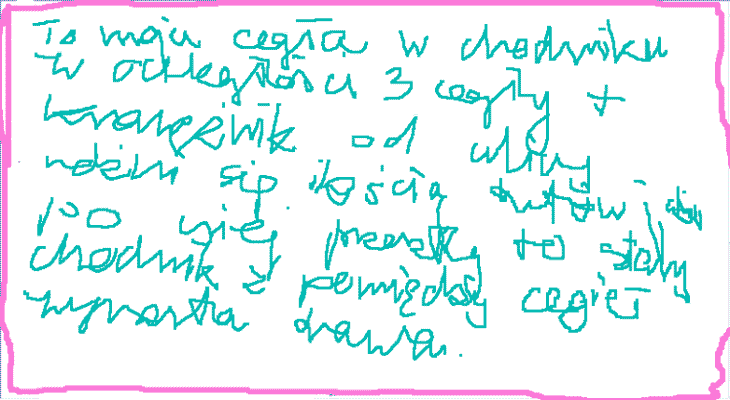 To moja cegła w chodniku
w odległości 3 cegły +
krawężnik od ulicy
się ilością butów i
po niej przeszły to stały
chodnik z pomiędzy cegieł
wyrasta trawa.